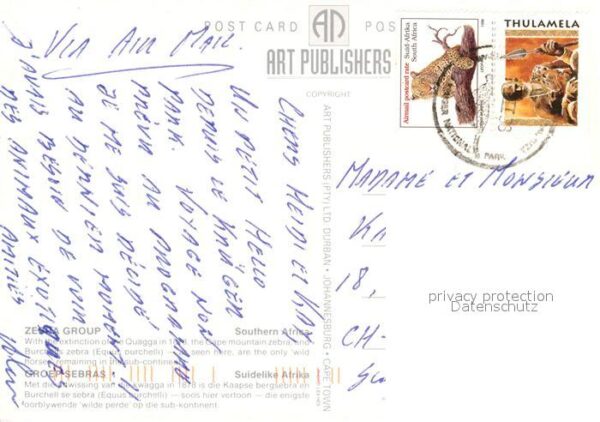 POST CARD
ART PUBLISHERS
COPYRIGHT
ART PUBLISHERS (PTY) LTD. DURBAN · JOHANNESBURG · CAPE TOWN
Airmail postcard rate
Suid-Afrika
South Africa
THULAMELA
KRUGER NATIONAL PARK
VIA AIR MAIL
CHERS HEIDI ET
UN PETIT HELLO
DEPUIS LE KRÜGER
PARK. VOYAGE NON
PRÉVU AU PROGRAMME
JE ME SUIS DÉCIDÉ,
AU DERNIER MOMENT!!
J'AVAIS BESOIN DE VOIR
DES ANIMAUX EXOTIQUES
AMITIÉS
MADAME ET MONSIEUR
KA
18,
CH-
privacy protection
Datenschutz
ZEBRA GROUP Southern Africa
With the extinction of the Quagga in 1878, the Cape mountain zebra and
Burchells zebra (Equus burchelli) — as seen here, are the only 'wild
horses' remaining in the sub-continent.
GROEP SEBRAS Suidelike Afrika
Met die uitwissing van die kwagga in 1878 is die Kaapse bergsebra en
Burchell se sebra (Equus burchelli) — soos hier vertoon — die enigste
oorblywende 'wilde perde' op die sub-kontinent.